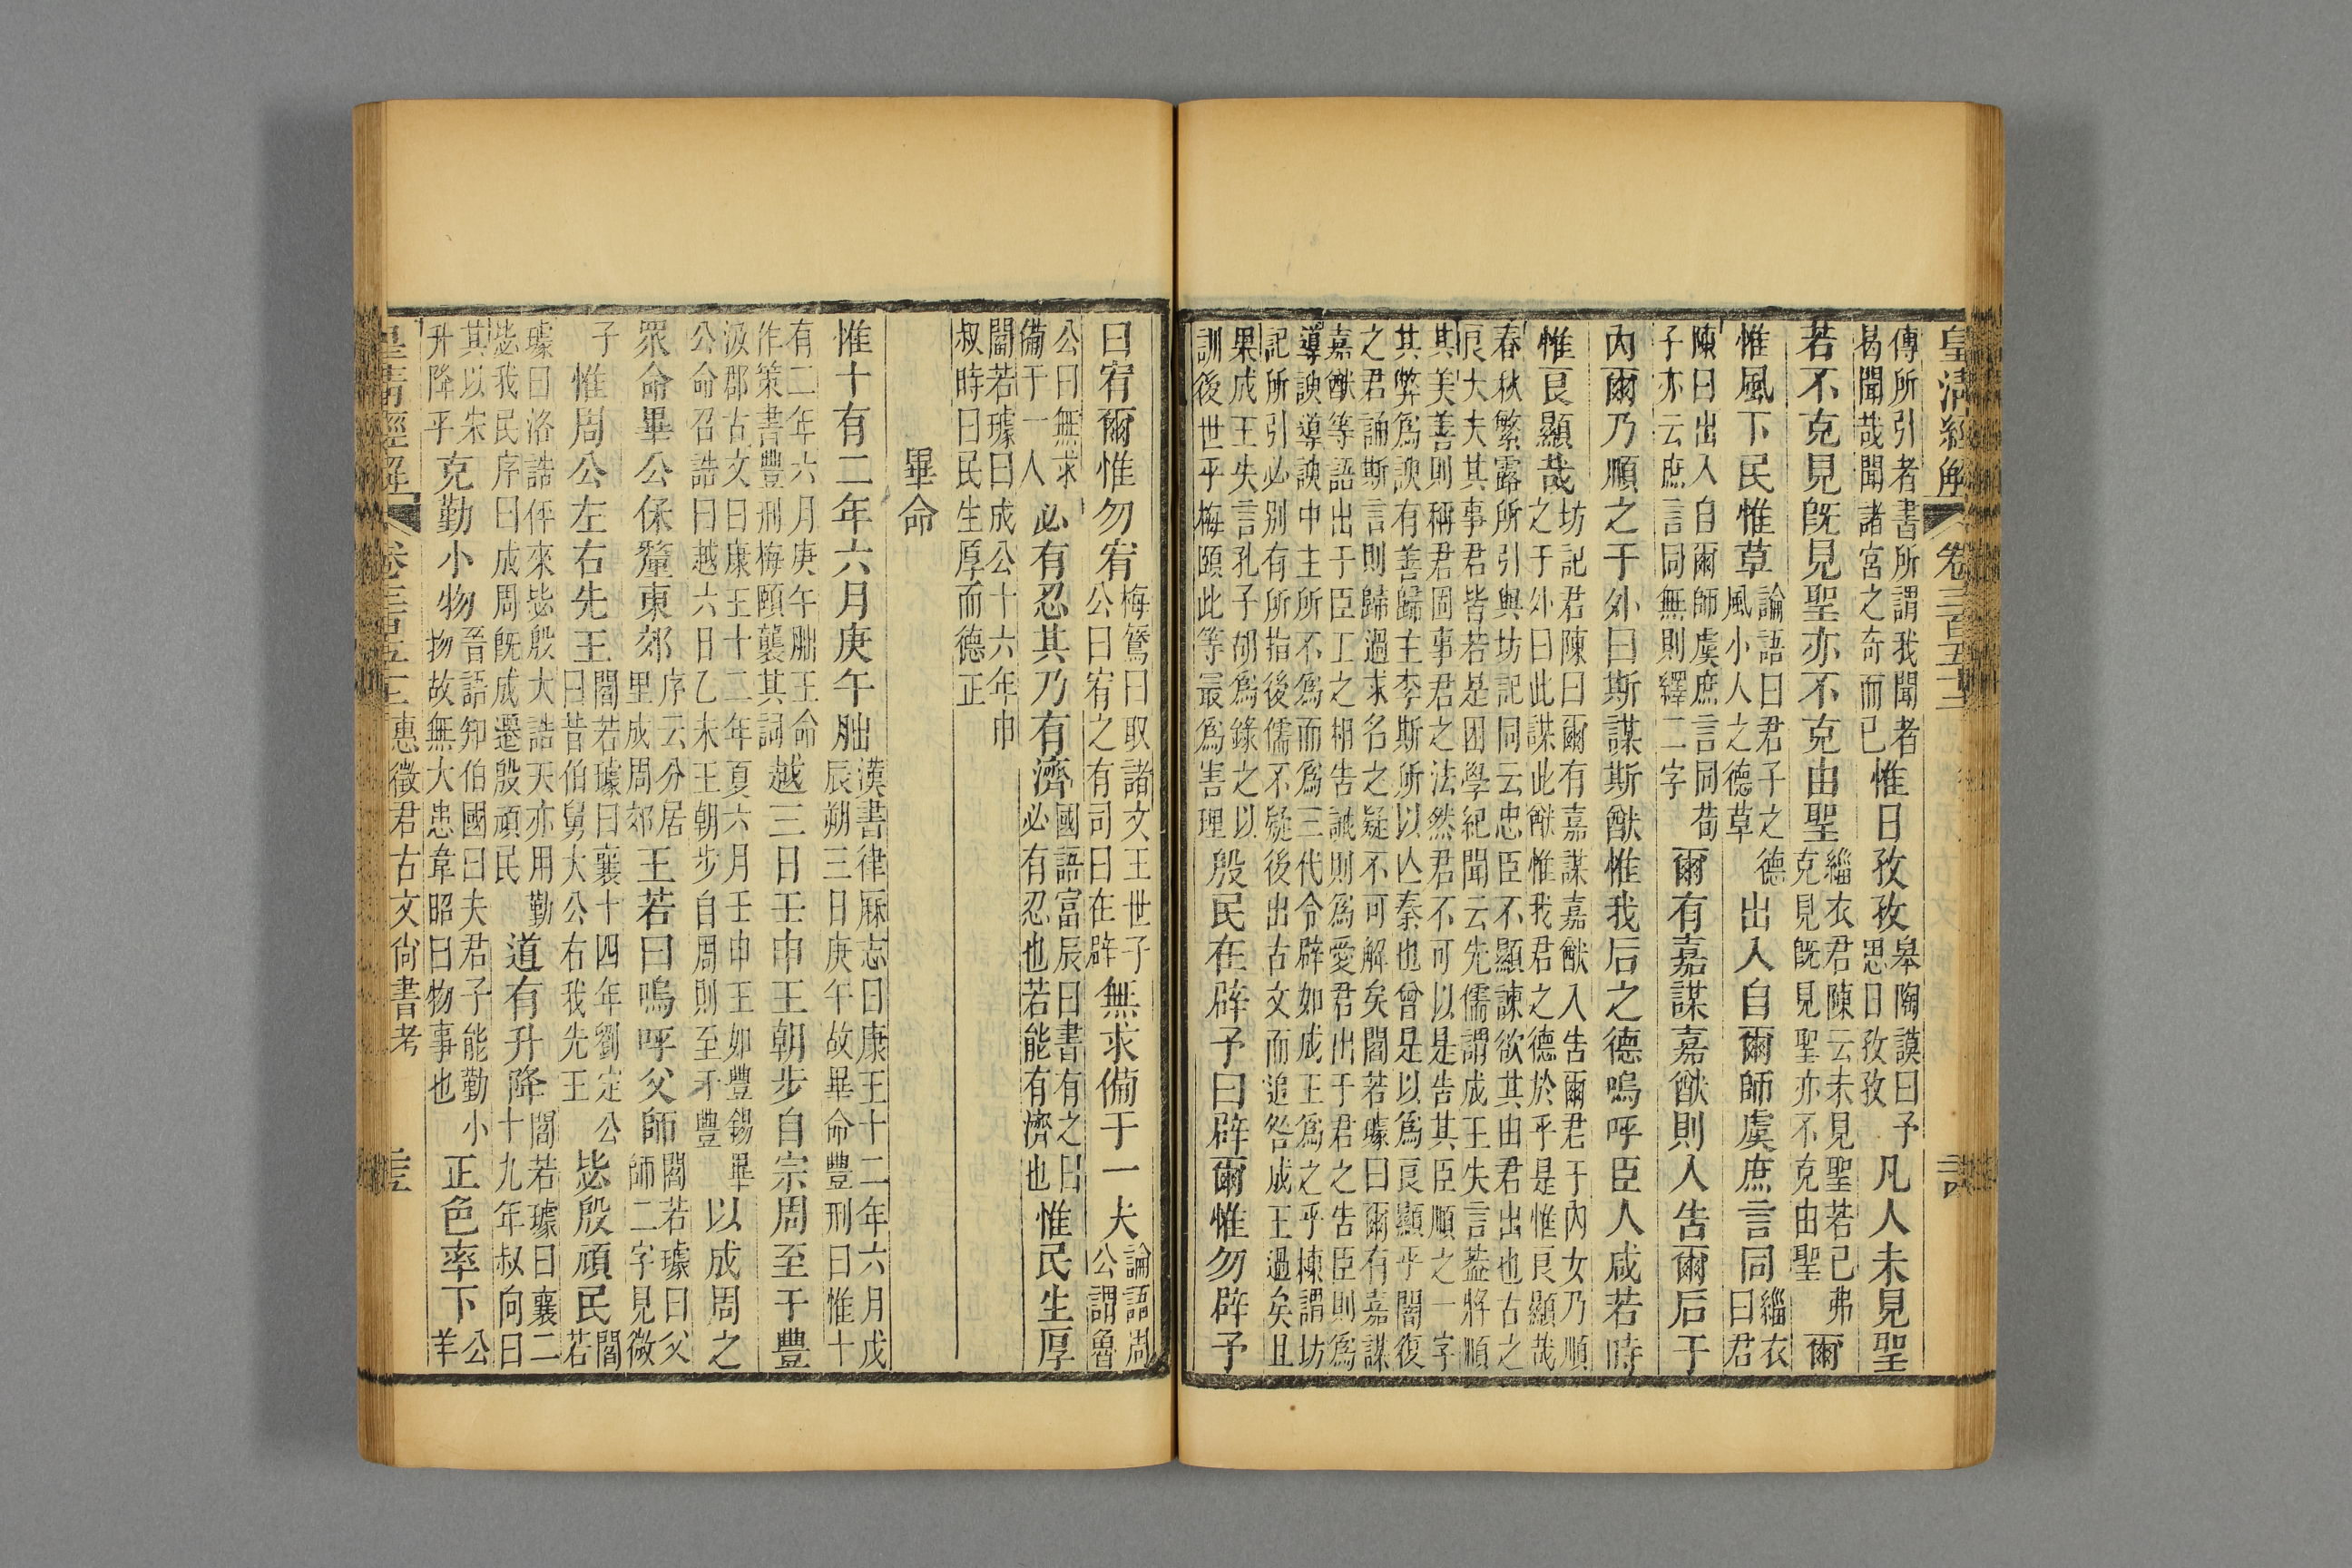 皇清經解 卷三百五十二
傳所引者書所謂我聞者
昜聞哉聞諸宮之奇而已
惟日孜孜
皋陶謨曰予
思日孜孜
凡人未見聖
若不克見旣見聖亦不克由聖
緇衣君陳云未見聖若已弗
克見旣見聖亦不克由聖
爾
惟風下民惟草
論語曰君子之德
風小人之德草
出入自爾師虞庶言同
緇衣
曰君
陳曰出入自爾師虞庶言同荀
子亦云庶言同無則繹二字
爾有嘉謀嘉猷則入告爾后于
內爾乃順之于外曰斯謀斯猷惟我后之德嗚呼臣人咸若時
惟良顯哉
坊記君陳曰爾有嘉謀嘉猷入告爾君于內女乃順
之于外曰此謀此猷惟我君之德於乎是惟良顯哉
春秋繁露所引與坊記同云忠臣不顯諫欲其由君出也古之
良大夫其事君皆若是困學紀聞云先儒謂成王失言葢將順
其美善則稱君固事君之法然君不可以是告其臣順之一字
其弊爲諛有善歸主李斯所以亾秦也曾是以爲良顯乎闇復
之君誦斯言則歸過求名之疑不可解矣閻若璩曰爾有嘉謀
嘉猷等語出于臣工之相告誡則爲愛君出于君之告臣則爲
導諛導諛中主所不爲而爲三代令辟如成王爲之乎棟謂坊
記所引必別有所指後儒不疑後出古文而追咎成王過矣且
果成王失言孔子胡爲錄之以
訓後世乎梅頤此等最爲害理
殷民在辟予曰辟爾惟勿辟予
曰宥爾惟勿宥
梅鷟曰取諸文王世子
公曰宥之有司曰在辟
無求備于一夫
論語周
公謂魯
公曰無求
備于一人
必有忍其乃有濟
國語富辰曰書有之曰
必有忍也若能有濟也
惟民生厚
閻若璩曰成公十六年申
叔時曰民生厚而德正
畢命
惟十有二年六月庚午朏
漢書律厤志曰康王十二年六月戊
辰朔三日庚午故畢命豐刑曰惟十
有二年六月庚午朏王命
作策書豐刑梅頤襲其詞
越三日壬申王朝步自宗周至于豐
汲郡古文曰康王十二年夏六月壬申王如豐錫畢
公命召誥曰越六日乙未王朝步自周則至于豐
以成周之
眾命畢公保釐東郊
序云分居
里成周郊
王若曰嗚呼父師
閻若璩曰父
師二字見微
子
惟周公左右先王
閻若璩曰襄十四年劉定公
曰昔伯舅大公右我先王
毖殷頑民
閻
若
璩曰洛誥伻來毖殷大誥天亦用勤
毖我民序曰成周旣成遷殷頑民
道有升降
閻若璩曰襄二
十九年叔向曰
其以宋
升降乎
克勤小物
晉語知伯國曰夫君子能勤小
物故無大患韋昭曰物事也
正色率下
公
羊
皇清經解 卷三百五十二 惠徵君古文尙書考